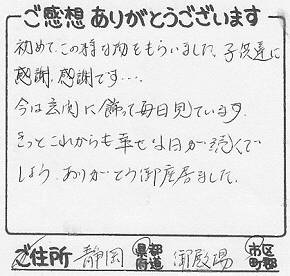 ご感想ありがとうございます
初めてこの様な物をもらいました。子供達に
感謝、感謝です・・・。
今は玄関に飾って毎日見ています。
きっとこれからも幸せな日が続くで
しょう。ありがとう御座居ました。
ご住所 静岡 都道府県 御殿場 市区町郡